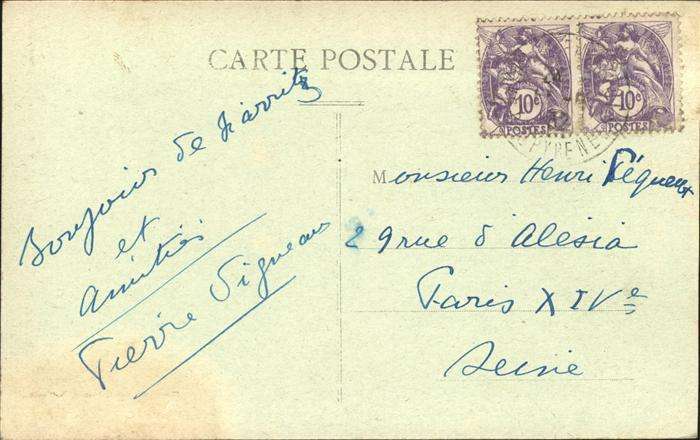 CARTE POSTALE
10c
POSTES
10c
POSTES
PYRENEES
Bonjour de Biarritz
et
Amitiés
Pierre Vigneau
Monsieur Henri
29 rue d'Alésia
Paris XIVe
Seine